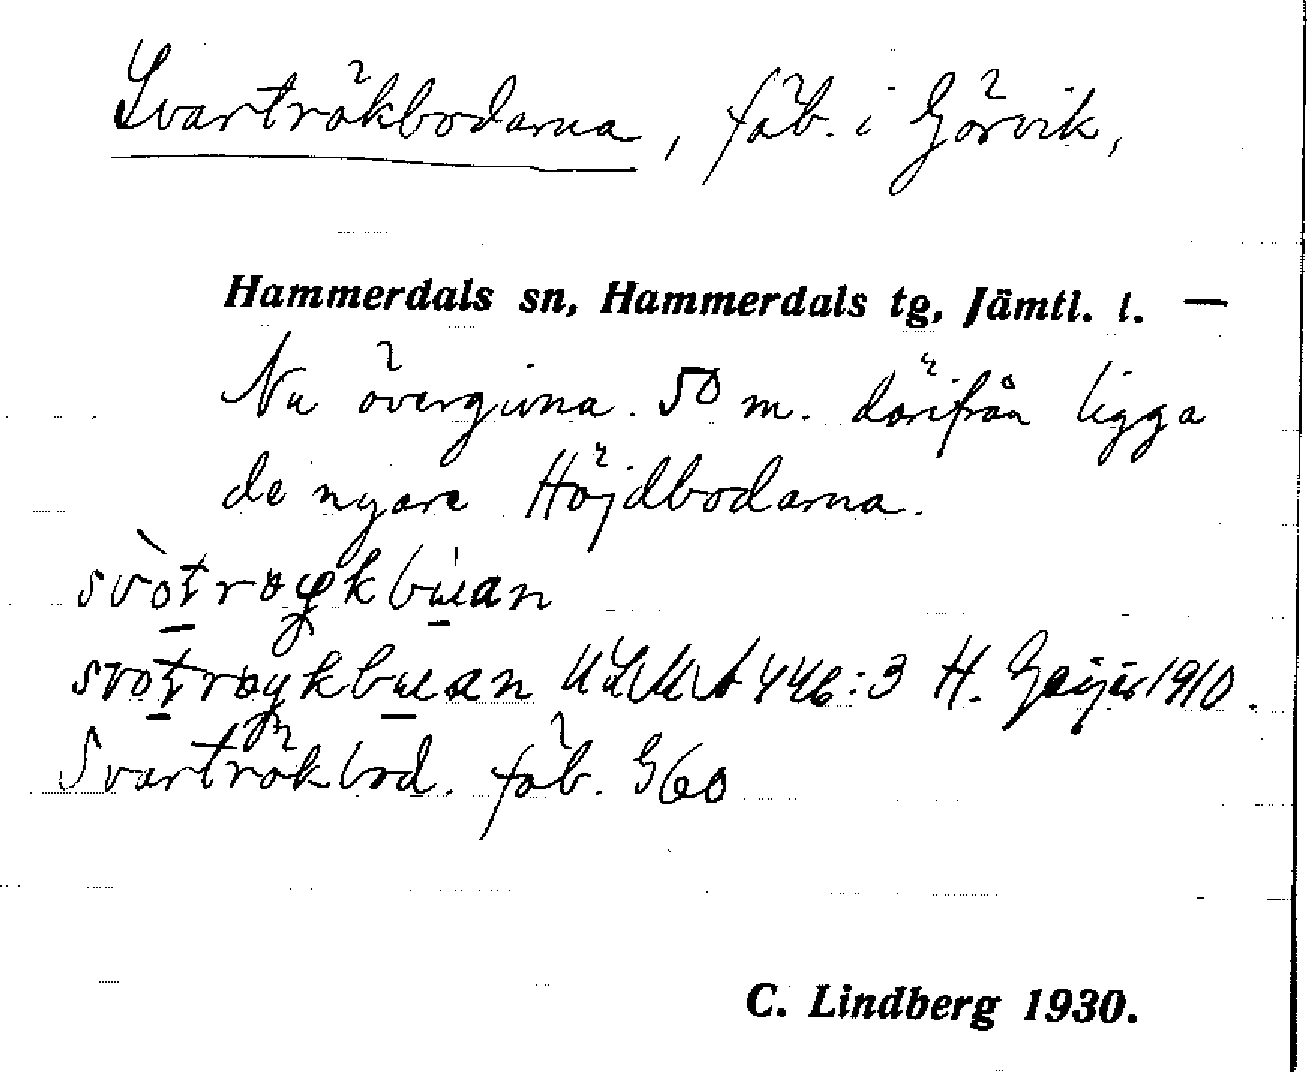 Svartrökbodarna, fäb. i Görvik,
Hammerdals sn, Hammerdals tg, Jämtl. l. —
Nu övergivna. 50 m. därifrån ligga
de nyare Höjdbodarna.
446:3 H. Geijer 1910.
Svartrökbod. fäb. G60
C. Lindberg 1930.